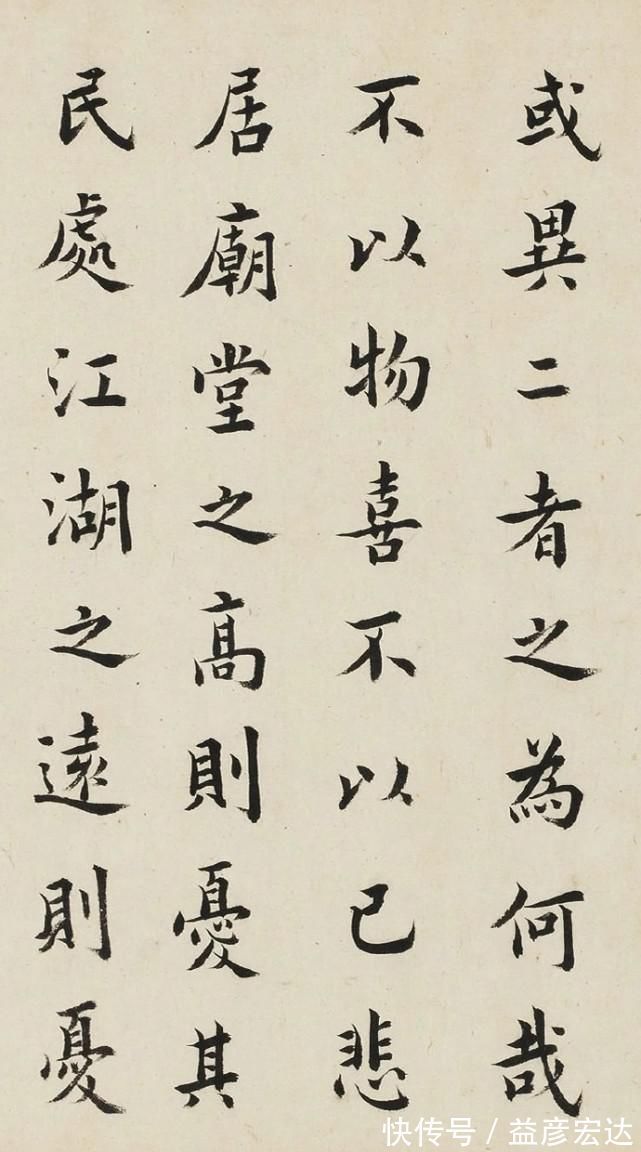 或異二者之為何哉
不以物喜不以己悲
居廟堂之高則憂其
民處江湖之遠則憂
快传号 / 益彦宏达